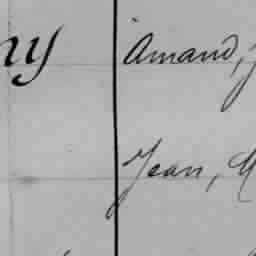 ny Amand, J
Jean, M